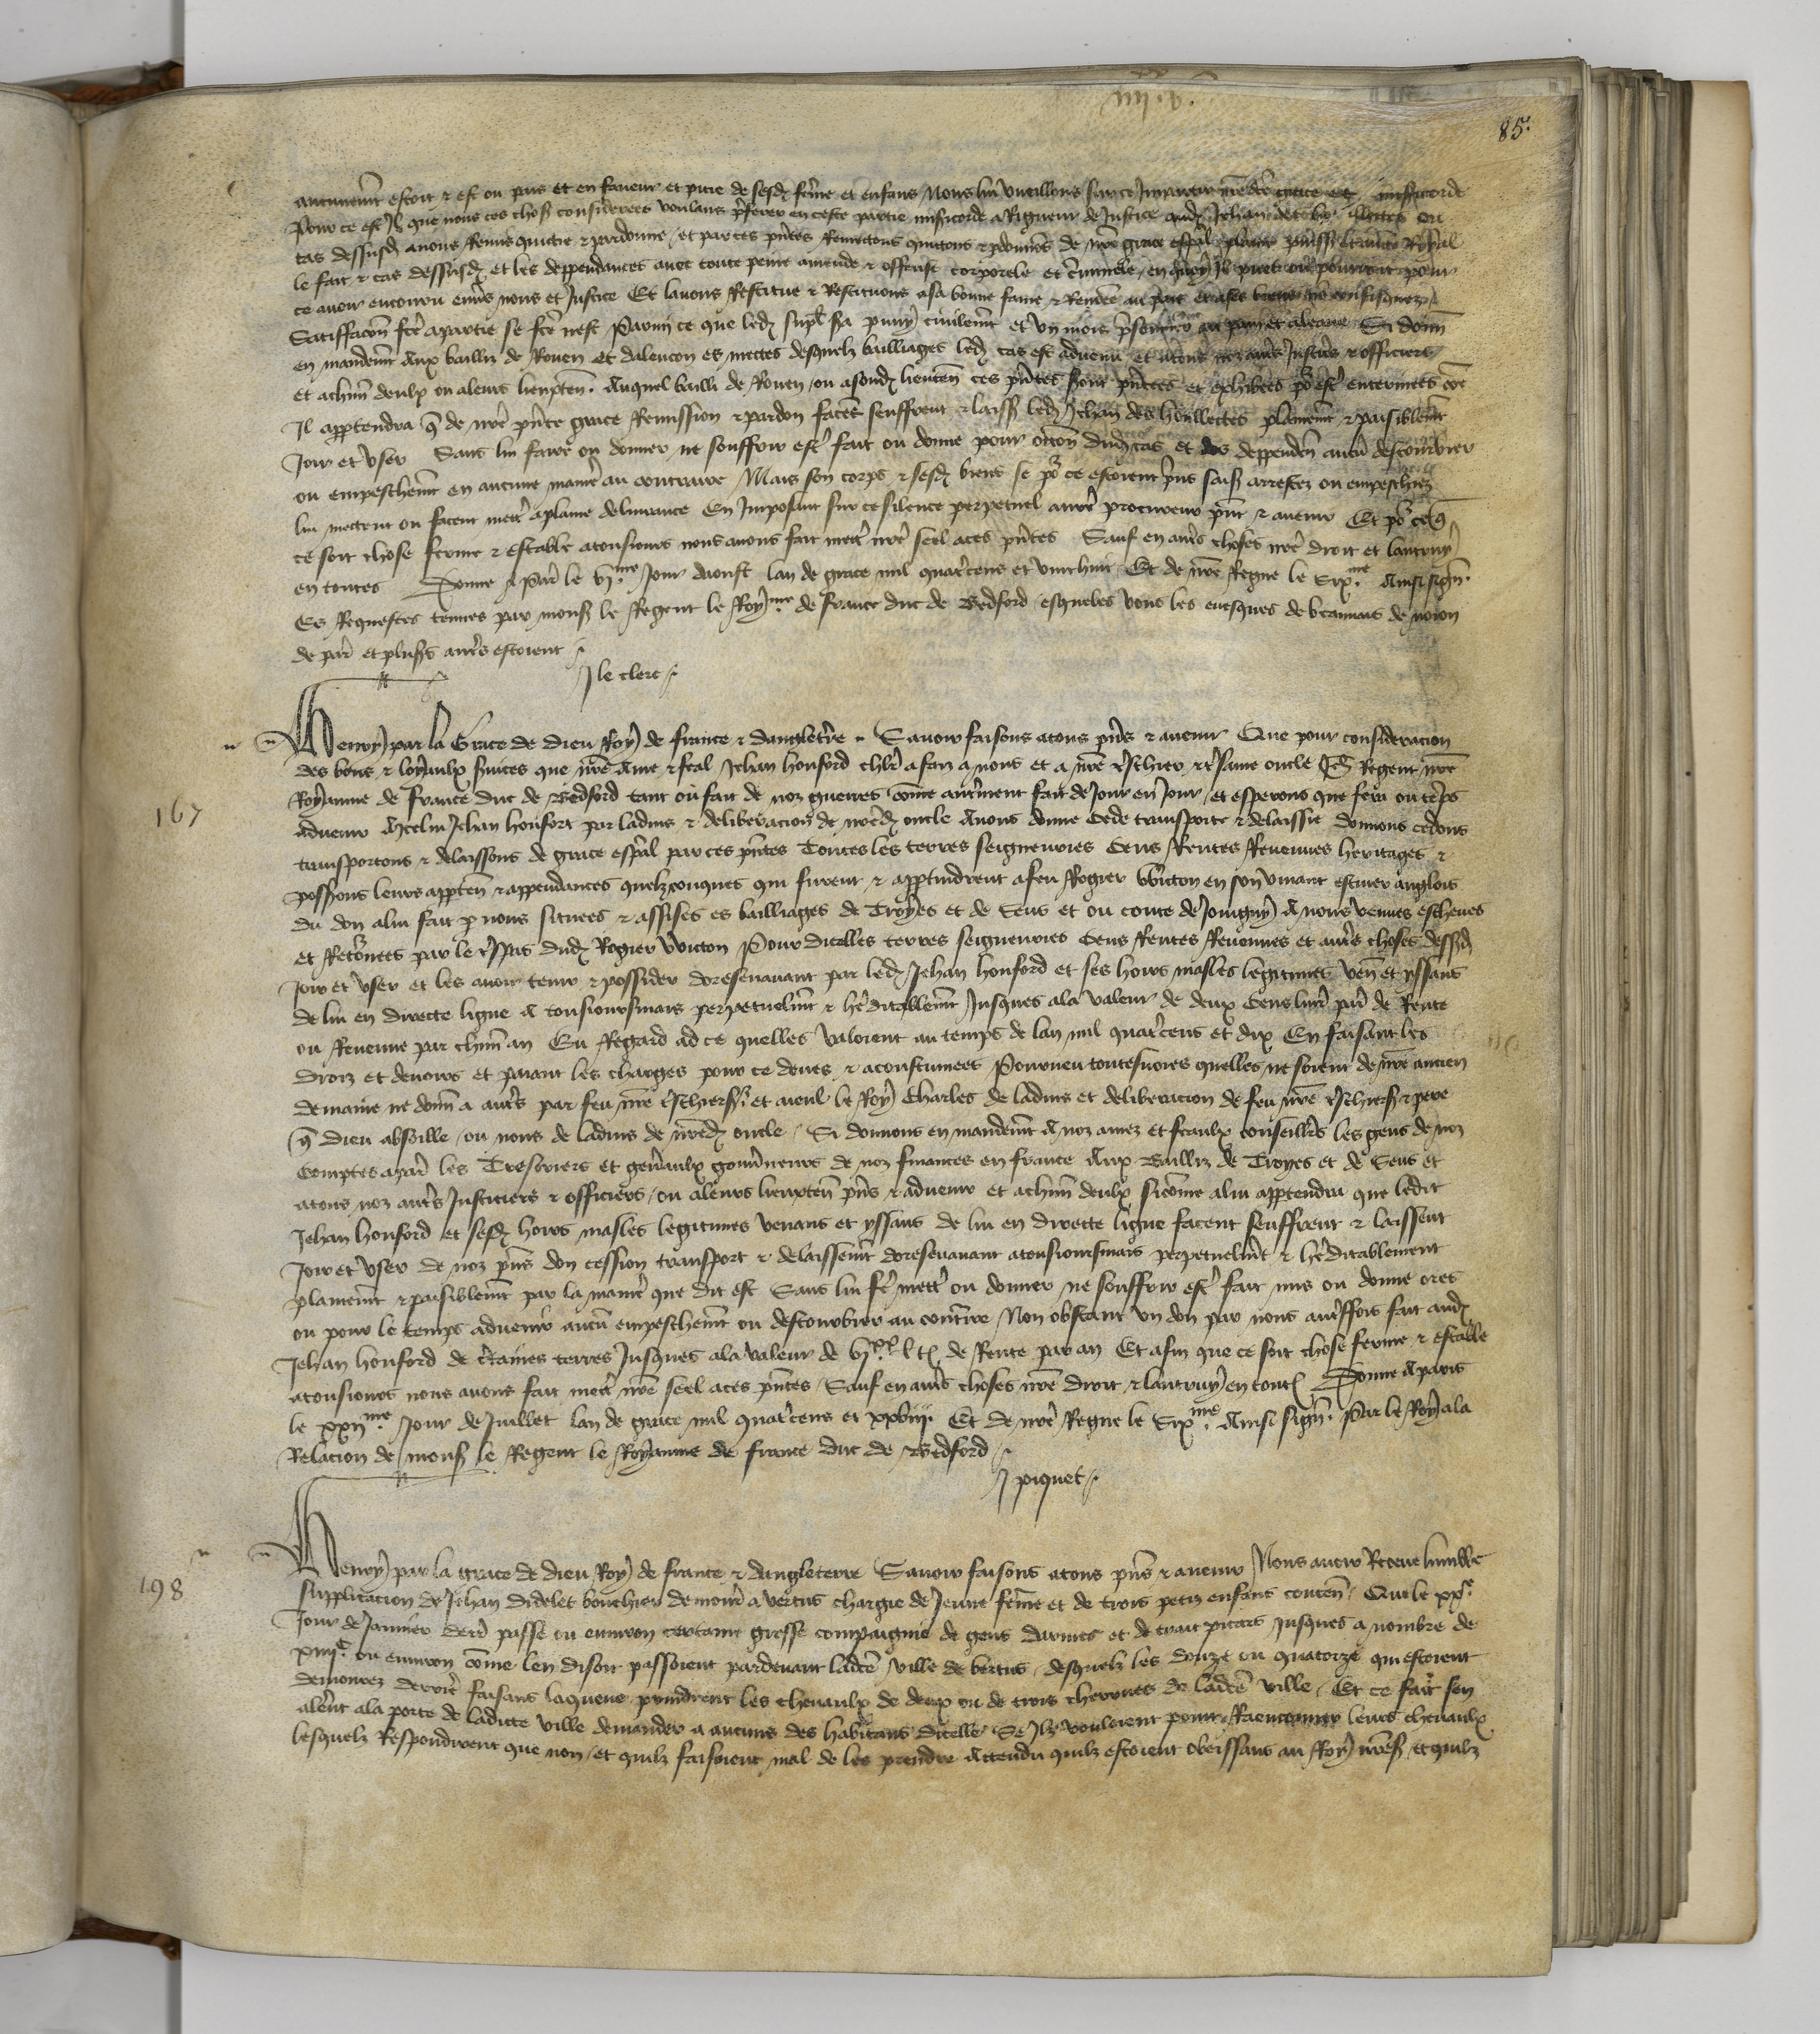 85.
ancunemt estoit & est ou pais et en faveur et pitie de sesd feme et enfans Nous lui vueillons sur ce Impartir misericorde
Pour ce est Il que nous ces choses considerees voulans preferer en ceste partie misericorde a Rigueur de Justice aud Jehan des houllettes ou
cas dessusd avons Remis quictie & pardonne / et par ces pntes Remectons quictons & pdonnons de nre grace espal plaine puissance et auctorite Royal
le fait & cas dessusd et les deppendances avec toute peine amende & offense corporele et criminele / en quoy Il puet ou pourroit pour
ce avoir encouru envers nous et Justice Et lavons Restitue & Restituons a sa bonne fame & Renommee au pais et a ses biens non confisquez /
Satisfacion fcte a partie se fcte nest Parmi ce que led suppl sa puny civilemt et un mois prisonnier au pain et a leaue Si donn
en mandemt Aux bailliz de Rouen et dalencon es mectes desquelz bailliages led cas est advenu et a tous noz autres Justiciers & officiers
et a chun deulx ou a leurs lieuxten. Auquel bailli de Rouen / ou a sond lieuten ces pntes seront pntees et exhibees por estre enterinees come
Il appartendra q de nre pnte grace Remission & pardon facent seuffrent & laissent led Jehan des houllettes plainemt & paisiblemt
Joir et user Sans lui faire ou donner ne souffrir estre fait ou donne pour occasion dud cas et des deppenden aucun destourbier
ou empeschemt en aucune maniere au contraire Mais son corps & sesd biens se pour ce estoient prins saisiz arrestez ou empeschiez
lui mectent ou facent mectre a plaine delivrance En Imposant sur ce silence perpetuel a nre procureur pnt & avenir Et por ce q
ce soit chose ferme & estable a tousiours nous avons fait mectre nre seel a ces pntes Sauf en autres choses nre droit et lautruy
en toutes Donne a Paris le vi.me Jour daoust lan de grace mil quatrecens et vint huit Et de nre Regne le Six.me Ainsi sign.
Es Requestes tenues par mons le Regent le Royme de france duc de Bedford / esqueles vous les evesques de beauvais de noion
de paris et plusrs autres estoient /.
J le clerc /.
Henry par la Grace de Dieu Roy de france & dangleterre Savoir faisons a tous pns & avenir Que pour consideracion
des bons & loyaulx services que nre Ame & feal Jehan honford chlr a faiz a nous et a nre treschier & tresame oncle Jeh Regent nre
Royaume de france duc de Bedford tant ou fait de noz guerres come autrement fait de Jour en Jour / et esperons que fera ou temps
167
advenir A icelui Jehan honfort par ladvis & deliberacion de nred oncle Avons donne Cede transporte & delaissie donnons cedons
transportons & delaissons de grace espal par ces pntes Toutes les terres seigneuries Cens Rentes Revenues heritages &
possess leurs apparten & appendances quelzconques qui furent & appartindrent a feu Rogier Wnton en son vivant escuier anglois
du don a lui fait p nous situees & assises es bailliages de Troyes et de Sens et ou conte de Joingny A nous venues escheues
et Retornees par le trespas dud Rogier Wnton Pour dicelles terres seigneuries Cens Rentes Revenues et autres choses dessusd
Joir et user et les avoir tenir & posseder doresenavant par led Jehan honford et ses hoirs masles legitimes ven et yssans
de lui en directe ligne A tousioursmais perpetuelmt & hereditablemt Jusques a la valeur de deux Cens livres par de Rente
ou Revenue par chun an Eu Regard ad ce quelles valoient au temps de lan mil quatrecens et dix En faisant les
droiz et devoirs et paiant les charges pour ce deues & acoustumees Pourveu toutesvoies quelles ne soient de nre ancien
demaine ne donn a autres par feu nre treschiers et aieul le Roy Charles de ladvis et deliberacion de feu nre treschiers & pere
q dieu absoille / ou nous de ladvis de nred oncle / Si donnons en mandemt A noz amez et feaulx conseillers les gens de noz
comptes a paris les Tresoriers et generaulx gouverneurs de noz finances en france Aux Bailliz de Troyes et de Sens et
a tous noz autres Justiciers & officiers / ou a leurs lieuxten pns & advenir et a chun deulx sicome a lui appartendra que ledit
Jehan honford et sesd hoirs masles legitimes venans et yssans de lui en directe ligne facent seuffrent & laissent
Joir et user de noz pns don cession transport & delaissemt doresenavant a tousioursmais perpetuelmt & hereditablement
plainemt & paisiblemt par la maniere que dit est Sans lui fre mectre ou donner ne souffrir estre fait mis ou donne ores
ou pour le temps advenir aucun empeschemt ou destourbier au contraire Non obstant un don par nous autreffois fait aud
Jehan honford de certaines terres Jusques a la valeur de l t de Rente par an Et afin que ce soit chose ferme & estable
a tousiours nous avons fait mectre nre seel a ces pntes / Sauf en autres choses nre droit & lautruy en toutes Donne a paris
le xxii.me Jour de Juillet lan de grace mil quatrecens et xxviij. Et de nre Regne le Six.me Ainsi sign. Par le Roy a la
Relacion de mons le Regent le Royaume de france duc de Bedford /.
J piquet /.
Henry par la grace de dieu Roy de france & dangleterre Savoir faisons a tous pns & avenir Nous avoir Receue lumble
198
supplicacion de Jehan Didelet bouchier demour a Vertus chargie de Jeune feme et de trois petiz enfans conten / Que le xx.e
Jour de Janvier derr passe ou environ certaine grosse compaignie de gens darmes et de trait picars Jusques a nombre de
ou environ come len disoit passoient pardevant ladte ville de vertus / desquelz les douze ou quatorze qui estoient
demourez derriere faisans la queue prindrent les chevaulx de deux ou de trois cherrues de ladte ville / Et ce fait sen
alerent a la porte de ladicte ville demander a aucuns des habitans dicelle Se Ilz vouloient point Raenconner leurs chevaulx
lesquelz Respondirent que non / et quilz faisoient mal de les prendre Attendu quilz estoient obeissans au Roy nres / et quilz